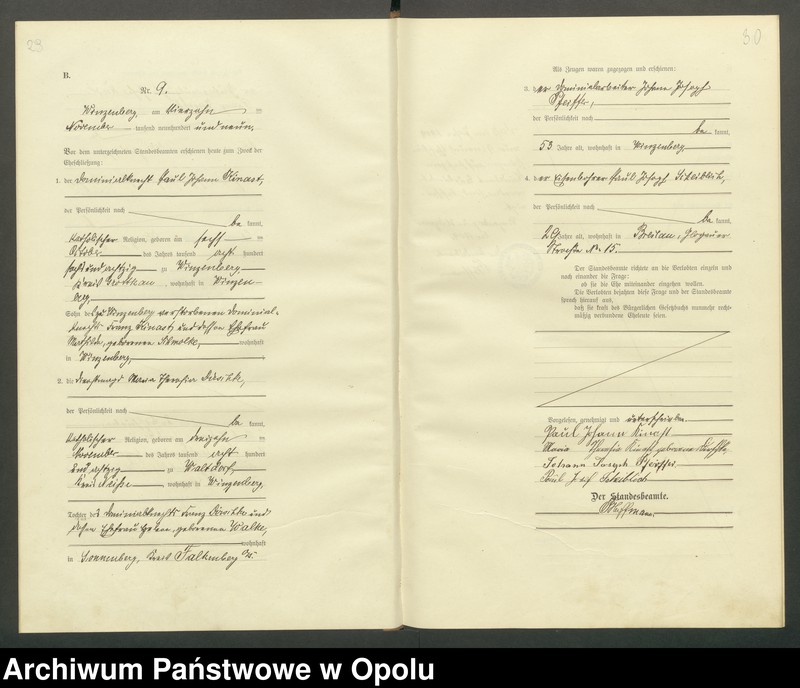 29
B.
Nr. 9.
Winzenberg am vierzehn ten
November tausend neunhundert und neun.
Vor dem unterzeichneten Standesbeamten erschienen heute zum Zweck der
Eheschließung:
1. der Dominialknecht Paul Johann Kinast,
der Persönlichkeit nach
be kannt,
katholischer Religion, geboren am sech ten
Oktober des Jahres tausend acht hundert
sechsundachtzig zu Winzenberg
Kreis Grottkau, wohnhaft in Winzen-
berg,
Sohn des zu Winzenberg verstorbenen Dominial-
knechts Franz Kinast, und dessen Ehefrau
Mathilde, geborenen wohnhaft
in Winzenberg,
2. die Dienstmagd Maria Theresia
der Persönlichkeit nach
be kannt,
katholischer Religion, geboren am dreizehn ten
November des Jahres tausend acht hundert
und achtzig zu Waltdorf,
Kreis Neiße, wohnhaft in Winzenberg,
Tochter des Dominialknechts Franz und
dessen Ehefrau Helene, geborenen Walke,
wohnhaft
in Sonnenberg, Kreis Falkenberg O/S.
30
Als Zeugen waren zugezogen und erschienen:
3. der Dominialarbeiter Johann Joseph
Pfeiffer,
der Persönlichkeit nach
be kannt,
53 Jahre alt, wohnhaft in Winzenberg
4. der Paul Joseph
der Persönlichkeit nach
be kannt,
29 Jahre alt, wohnhaft in Breslau, Glogauer
Straße No. 15.
Der Standesbeamte richtete an die Verlobten einzeln und
nach einander die Frage:
ob sie die Ehe miteinander eingehen wollen.
Die Verlobten bejahten diese Frage und der Standesbeamte
sprach hierauf aus,
daß sie kraft des Bürgerlichen Gesetzbuchs nunmehr recht-
mäßig verbundene Eheleute seien.
Vorgelesen, genehmigt und unterschrieben.
Paul Johann Kinast
Maria Theresia Kinast geborene
Johann Joseph Pfeiffer
Paul Josef
Der Standesbeamte.
Hoffmann.
Archiwum Państwowe w Opolu